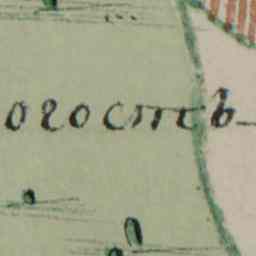 огостъ